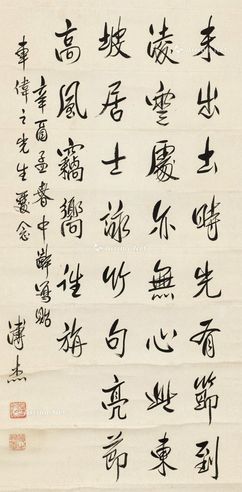 未出土時先有節到
淩雲處亦無心此東
坡居士詠竹句亮節
高風竊嚮往旃
辛酉孟春中澣寫貽
車偉之先生愛念
溥杰